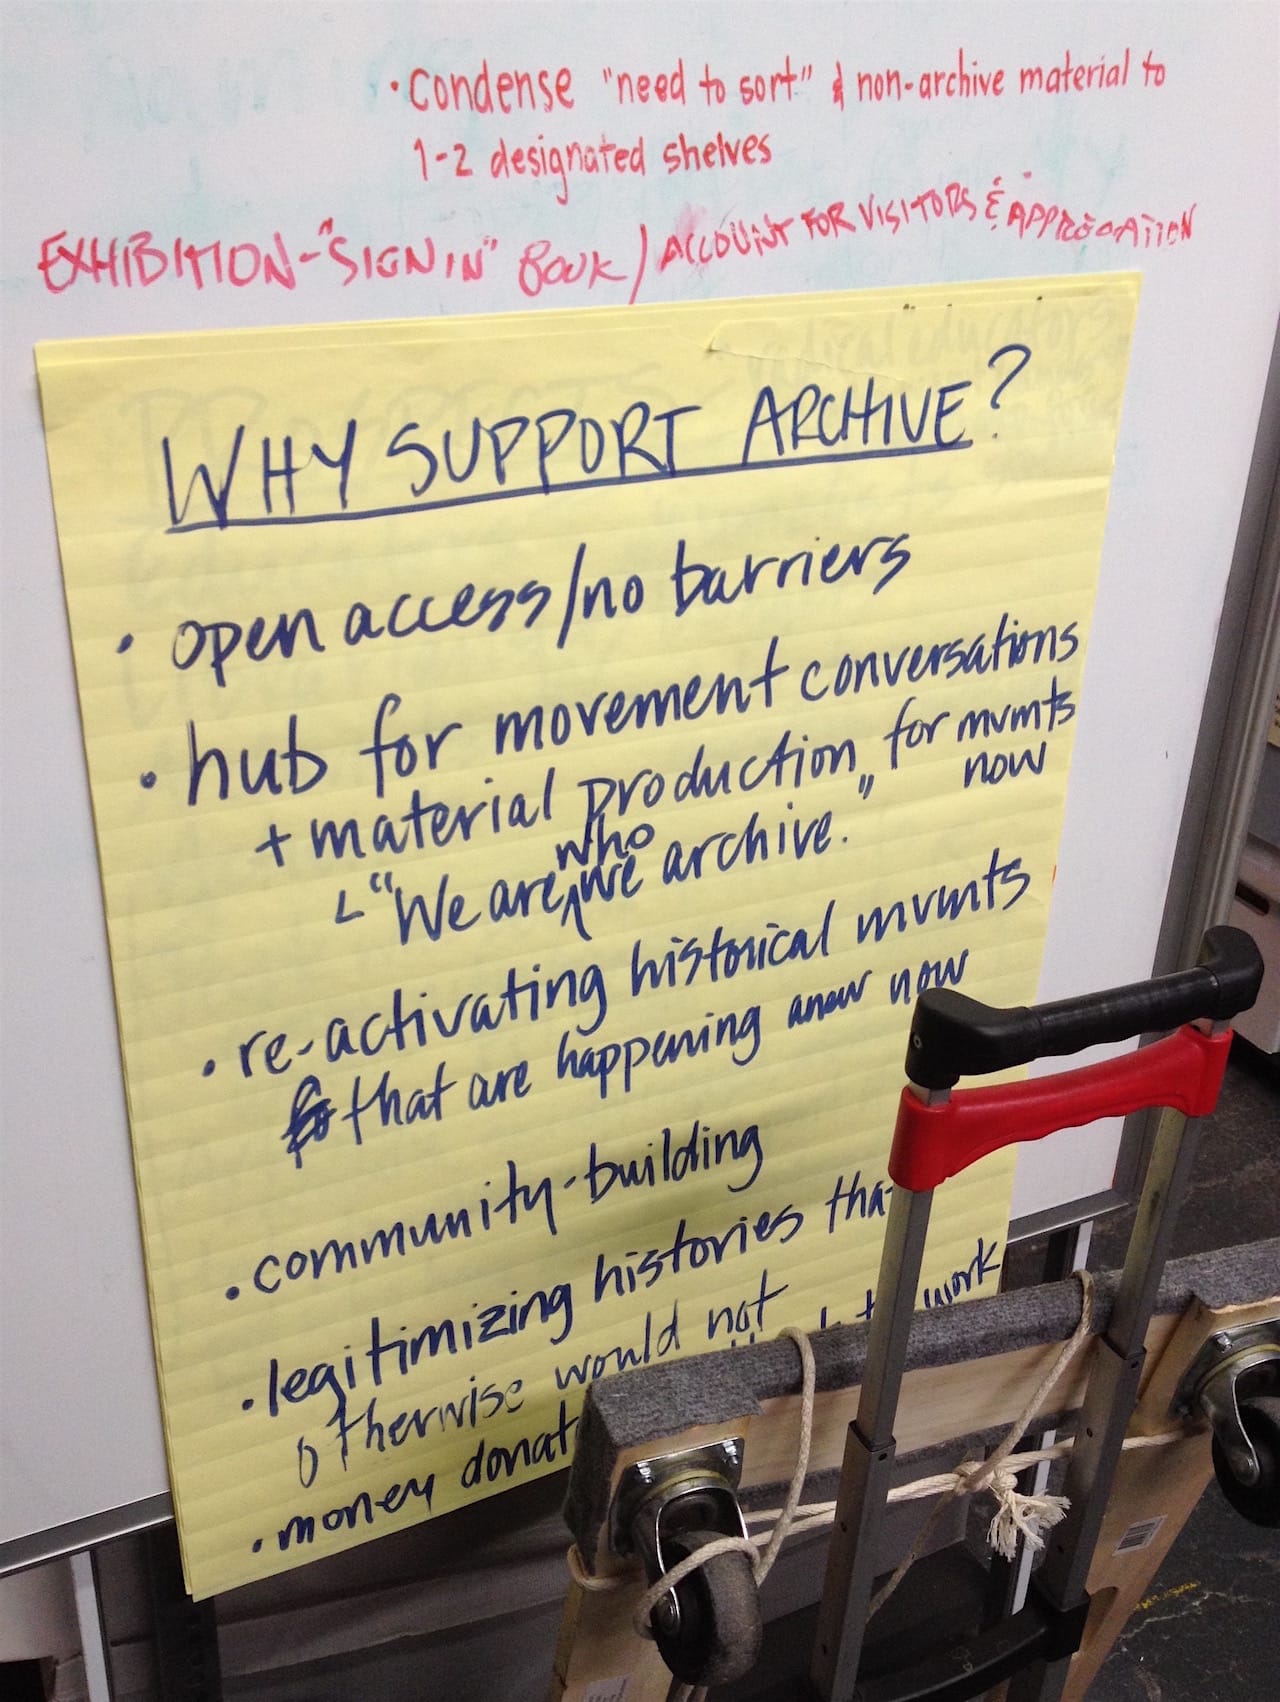 · Condense "need to sort" & non-archive material to
1-2 designated shelves
EXHIBITION - "SIGN IN" BOOK / ACCOUNT FOR VISITORS & APPRECIATION
WHY SUPPORT ARCHIVE?
· open access/no barriers
· hub for movement conversations
+ material production for mvmts
now
"We are who we archive."
· re-activating historical mvmts
that are happening anew now
· community-building
· legitimizing histories that
otherwise would not
work
· money